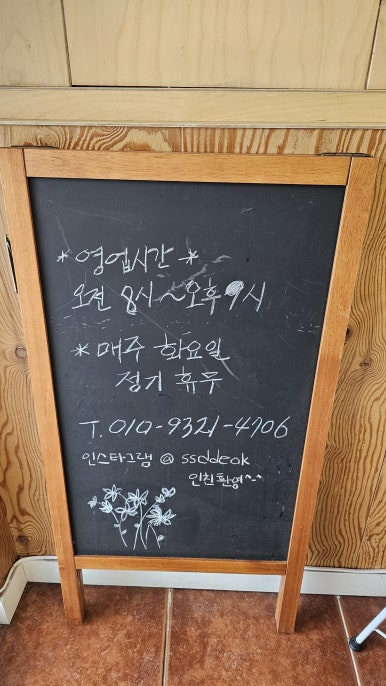 * 영업시간 *
오전 8시~오후 9시
* 매주 화요일
정기 휴무
T. 010-9321-4706
인스타그램 @ ssddeok
인친환영^-^